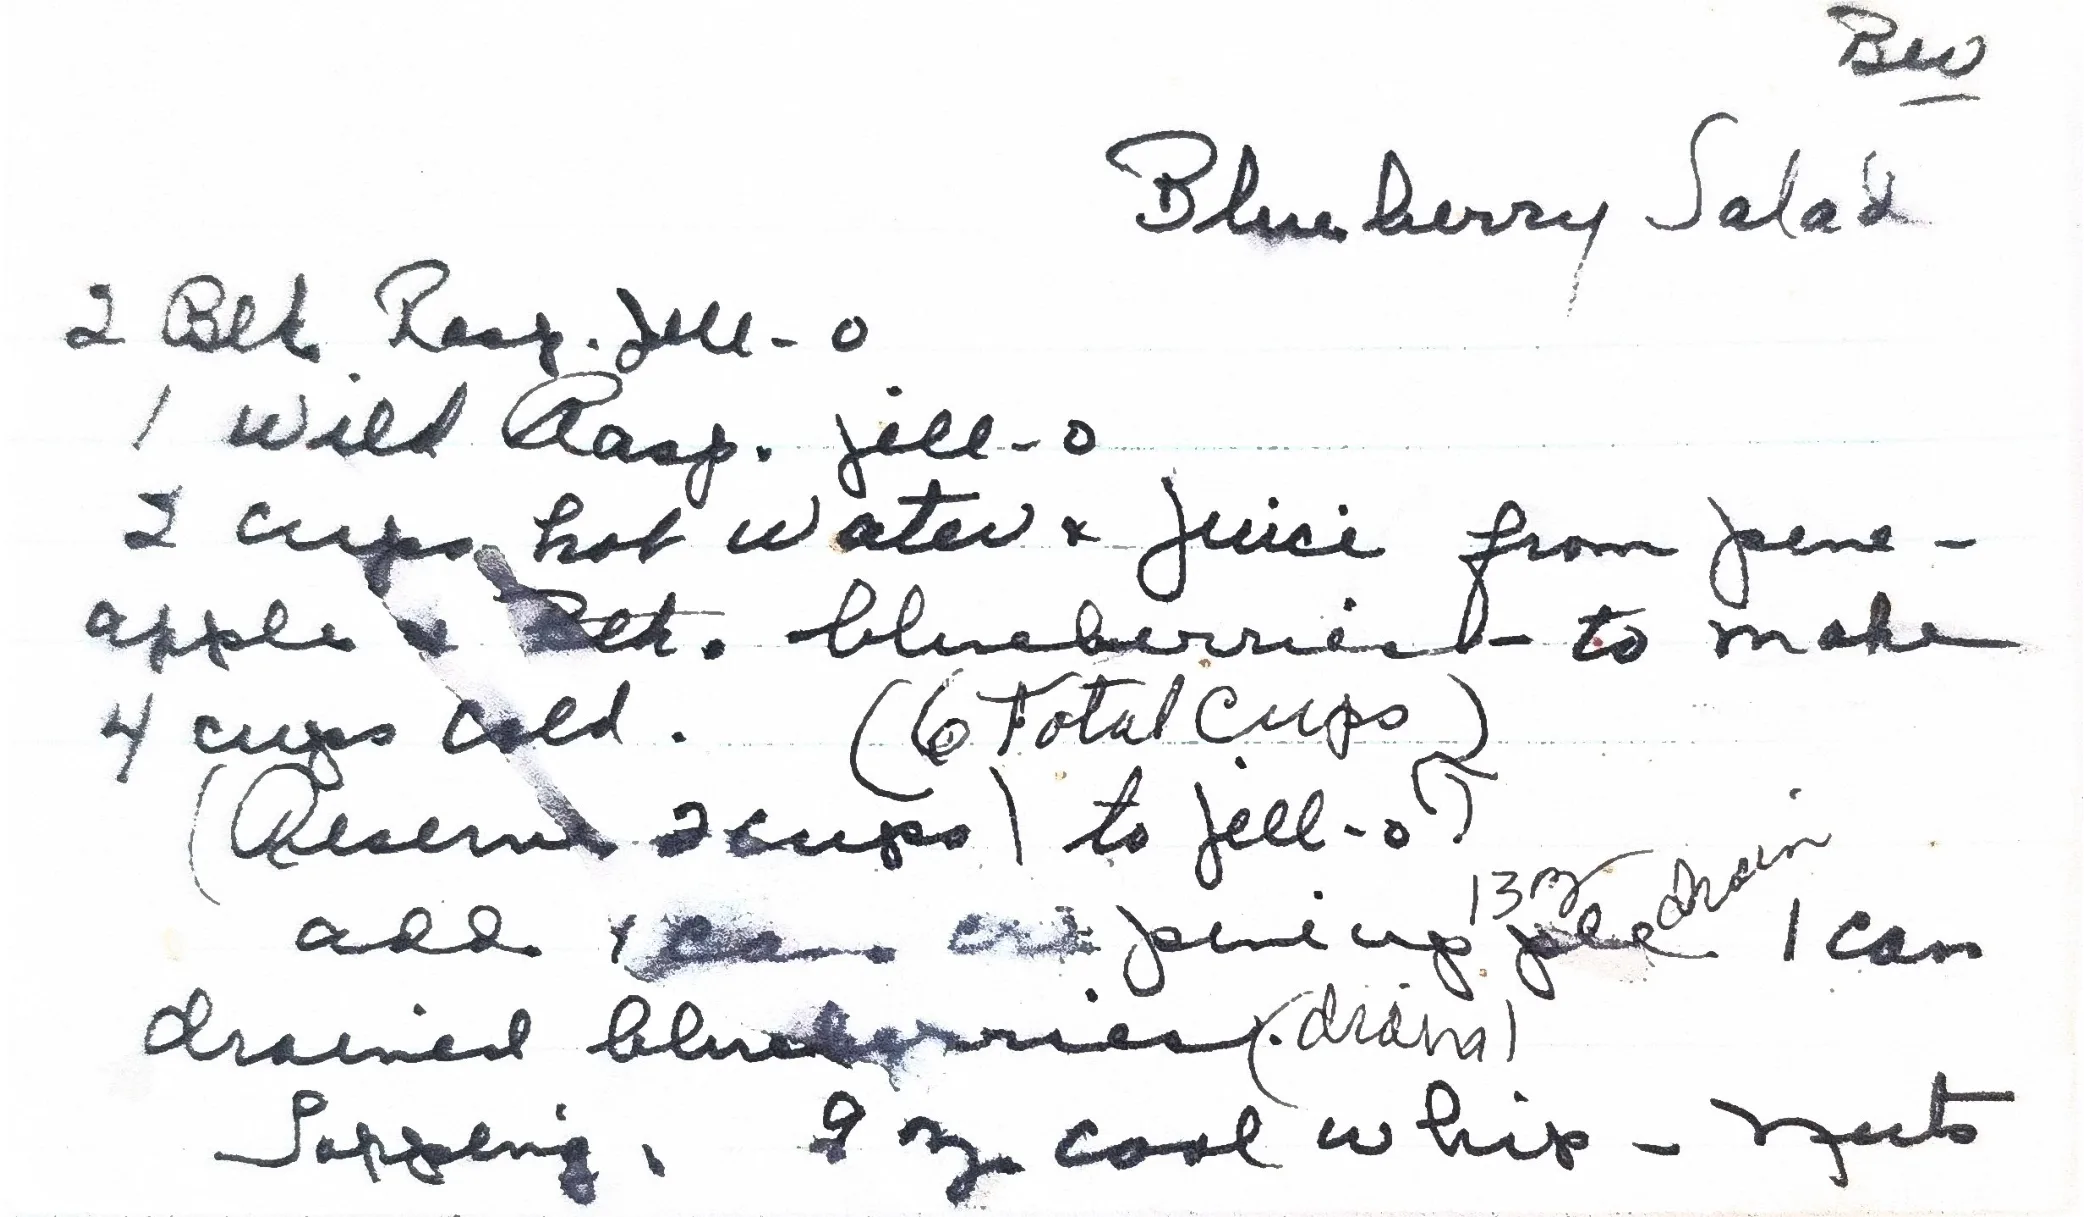 Bev
Blueberry Salad
2 Blk. Rasp. Jell-o
1 Wild Rasp. jell-o
2 cups hot water & juice from pine-
apple & Blk. blueberries - to make
4 cups cold. (6 Total Cups)
(Reserve 2 cups) to jell-o
13 oz drain
add 1 can pineapple 1 can
drained blueberries. (drain)
Topping. 9 oz. cool whip - nuts